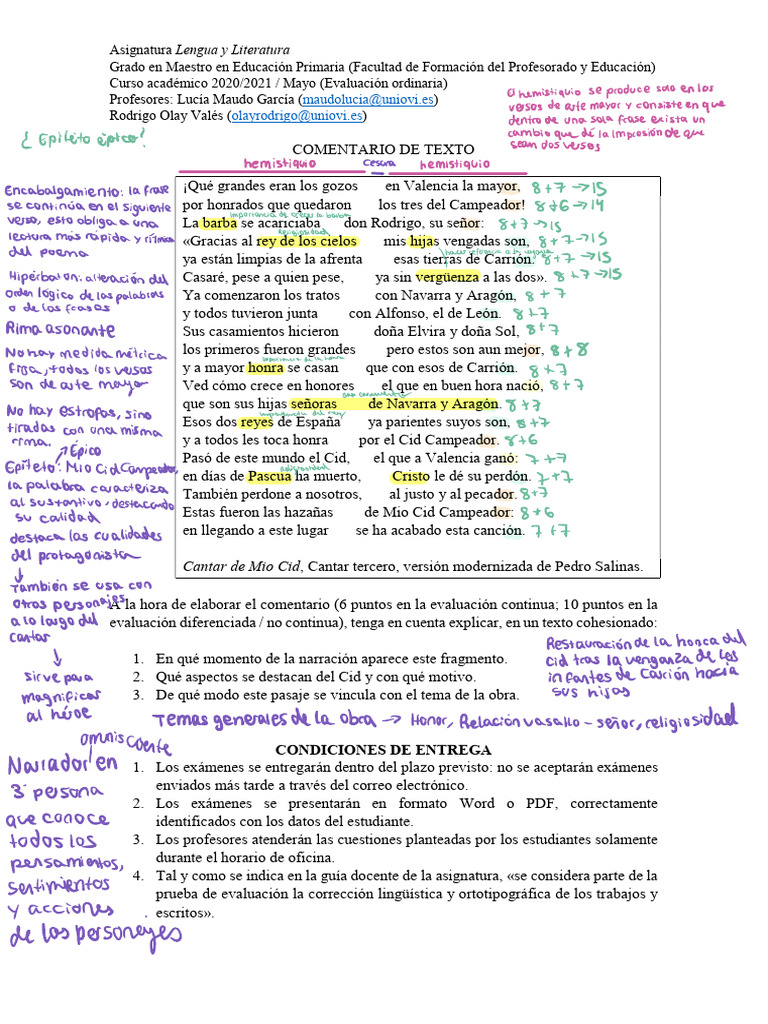 Asignatura Lengua y Literatura
Grado en Maestro en Educación Primaria (Facultad de Formación del Profesorado y Educación)
Curso académico 2020/2021 / Mayo (Evaluación ordinaria)
Profesores: Lucía Maudo García (maudolucia@uniovi.es)
Rodrigo Olay Valés (olayrodrigo@uniovi.es)
El hemistiquio se produce solo en los
versos de arte mayor y consiste en que
dentro de una sola frase exista un
cambio que dé la impresión de que
sean dos versos
¿Epíteto épico?
COMENTARIO DE TEXTO
hemistiquio cesura hemistiquio
¡Qué grandes eran los gozos en Valencia la mayor, 8+7→15
por honrados que quedaron los tres del Campeador! 8+6→14
importancia de la barba
La barba se acariciaba don Rodrigo, su señor: 8+7→15
religiosidad
«Gracias al rey de los cielos mis hijas vengadas son, 8+7→15
hacer referencia a la
ya están limpias de la afrenta esas tierras de Carrión. 8+7→15
Casaré, pese a quien pese, ya sin vergüenza a las dos». 8+7→15
Ya comenzaron los tratos con Navarra y Aragón, 8+7
y todos tuvieron junta con Alfonso, el de León. 8+7
Sus casamientos hicieron doña Elvira y doña Sol, 8+7
los primeros fueron grandes pero estos son aun mejor, 8+8
importancia de la honra
y a mayor honra se casan que con esos de Carrión. 8+7
Ved cómo crece en honores el que en buen hora nació, 8+7
que son sus hijas señoras de Navarra y Aragón. 8+7
importancia del rey
Esos dos reyes de España ya parientes suyos son, 8+7
y a todos les toca honra por el Cid Campeador. 8+6
Pasó de este mundo el Cid, el que a Valencia ganó: 7+7
religiosidad
en días de Pascua ha muerto, Cristo le dé su perdón. 7+7
También perdone a nosotros, al justo y al pecador. 8+7
Estas fueron las hazañas de Mio Cid Campeador: 8+6
en llegando a este lugar se ha acabado esta canción. 7+7
Cantar de Mio Cid, Cantar tercero, versión modernizada de Pedro Salinas.
Encabalgamiento: la frase
se continúa en el siguiente
verso, esto obliga a una
lectura más rápida y rítmica
del poema
Hipérbaton: alteración del
orden lógico de las palabras
o de las frases
Rima asonante
No hay medida métrica
fija, todos los versos
son de arte mayor
No hay estrofas, sino
tiradas con una misma
rima.
Épico
Epíteto: Mio Cid Campeador,
la palabra caracteriza
al sustantivo, destacando
su calidad
destaca las cualidades
del protagonista
También se usa con
otros personajes
a lo largo del
cantar
sirve para
magnificar
al héroe
A la hora de elaborar el comentario (6 puntos en la evaluación continua; 10 puntos en la
evaluación diferenciada / no continua), tenga en cuenta explicar, en un texto cohesionado:
1. En qué momento de la narración aparece este fragmento.
2. Qué aspectos se destacan del Cid y con qué motivo.
3. De qué modo este pasaje se vincula con el tema de la obra.
Restauración de la honra del
cid tras la venganza de los
infantes de Carrión hacia
sus hijas
Temas generales de la obra → Honor, Relación vasallo-señor, religiosidad
CONDICIONES DE ENTREGA
1. Los exámenes se entregarán dentro del plazo previsto: no se aceptarán exámenes
enviados más tarde a través del correo electrónico.
2. Los exámenes se presentarán en formato Word o PDF, correctamente
identificados con los datos del estudiante.
3. Los profesores atenderán las cuestiones planteadas por los estudiantes solamente
durante el horario de oficina.
4. Tal y como se indica en la guía docente de la asignatura, «se considera parte de la
prueba de evaluación la corrección lingüística y ortotipográfica de los trabajos y
escritos».
omnisciente
Narrador en
3ª persona
que conoce
todos los
pensamientos,
sentimientos
y acciones
de los personajes